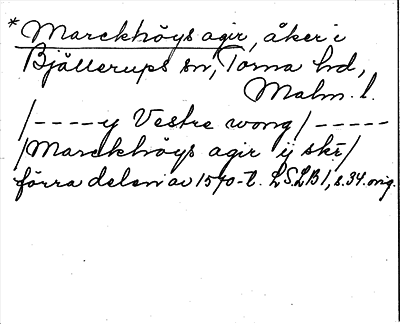 * Marckhöys agir, åker i
Bjällerups sn, Torna hd,
Malm. l.
/----y Vestre wong/-----
/Marckhöys agir ij skr/
förra delen av 1570-t. LSLB 1, s. 34. orig.